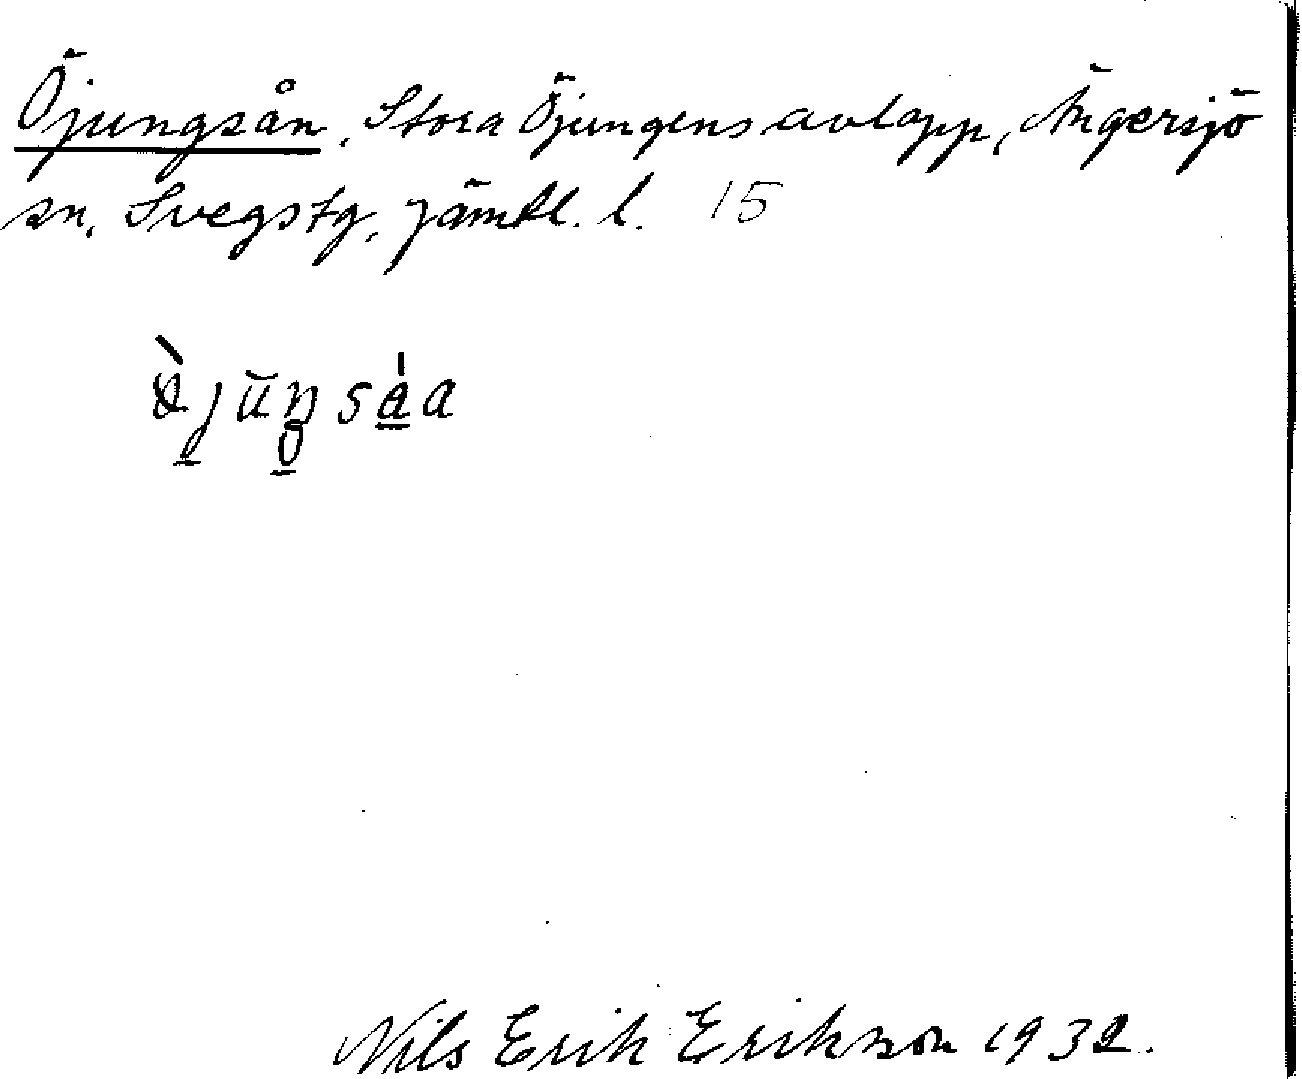 Öjungsån, Stora Öjungens avlopp, Ängersjö
sn, Svegs tg, Jämtl. l. 15
Nils Erik Erikson 1932.